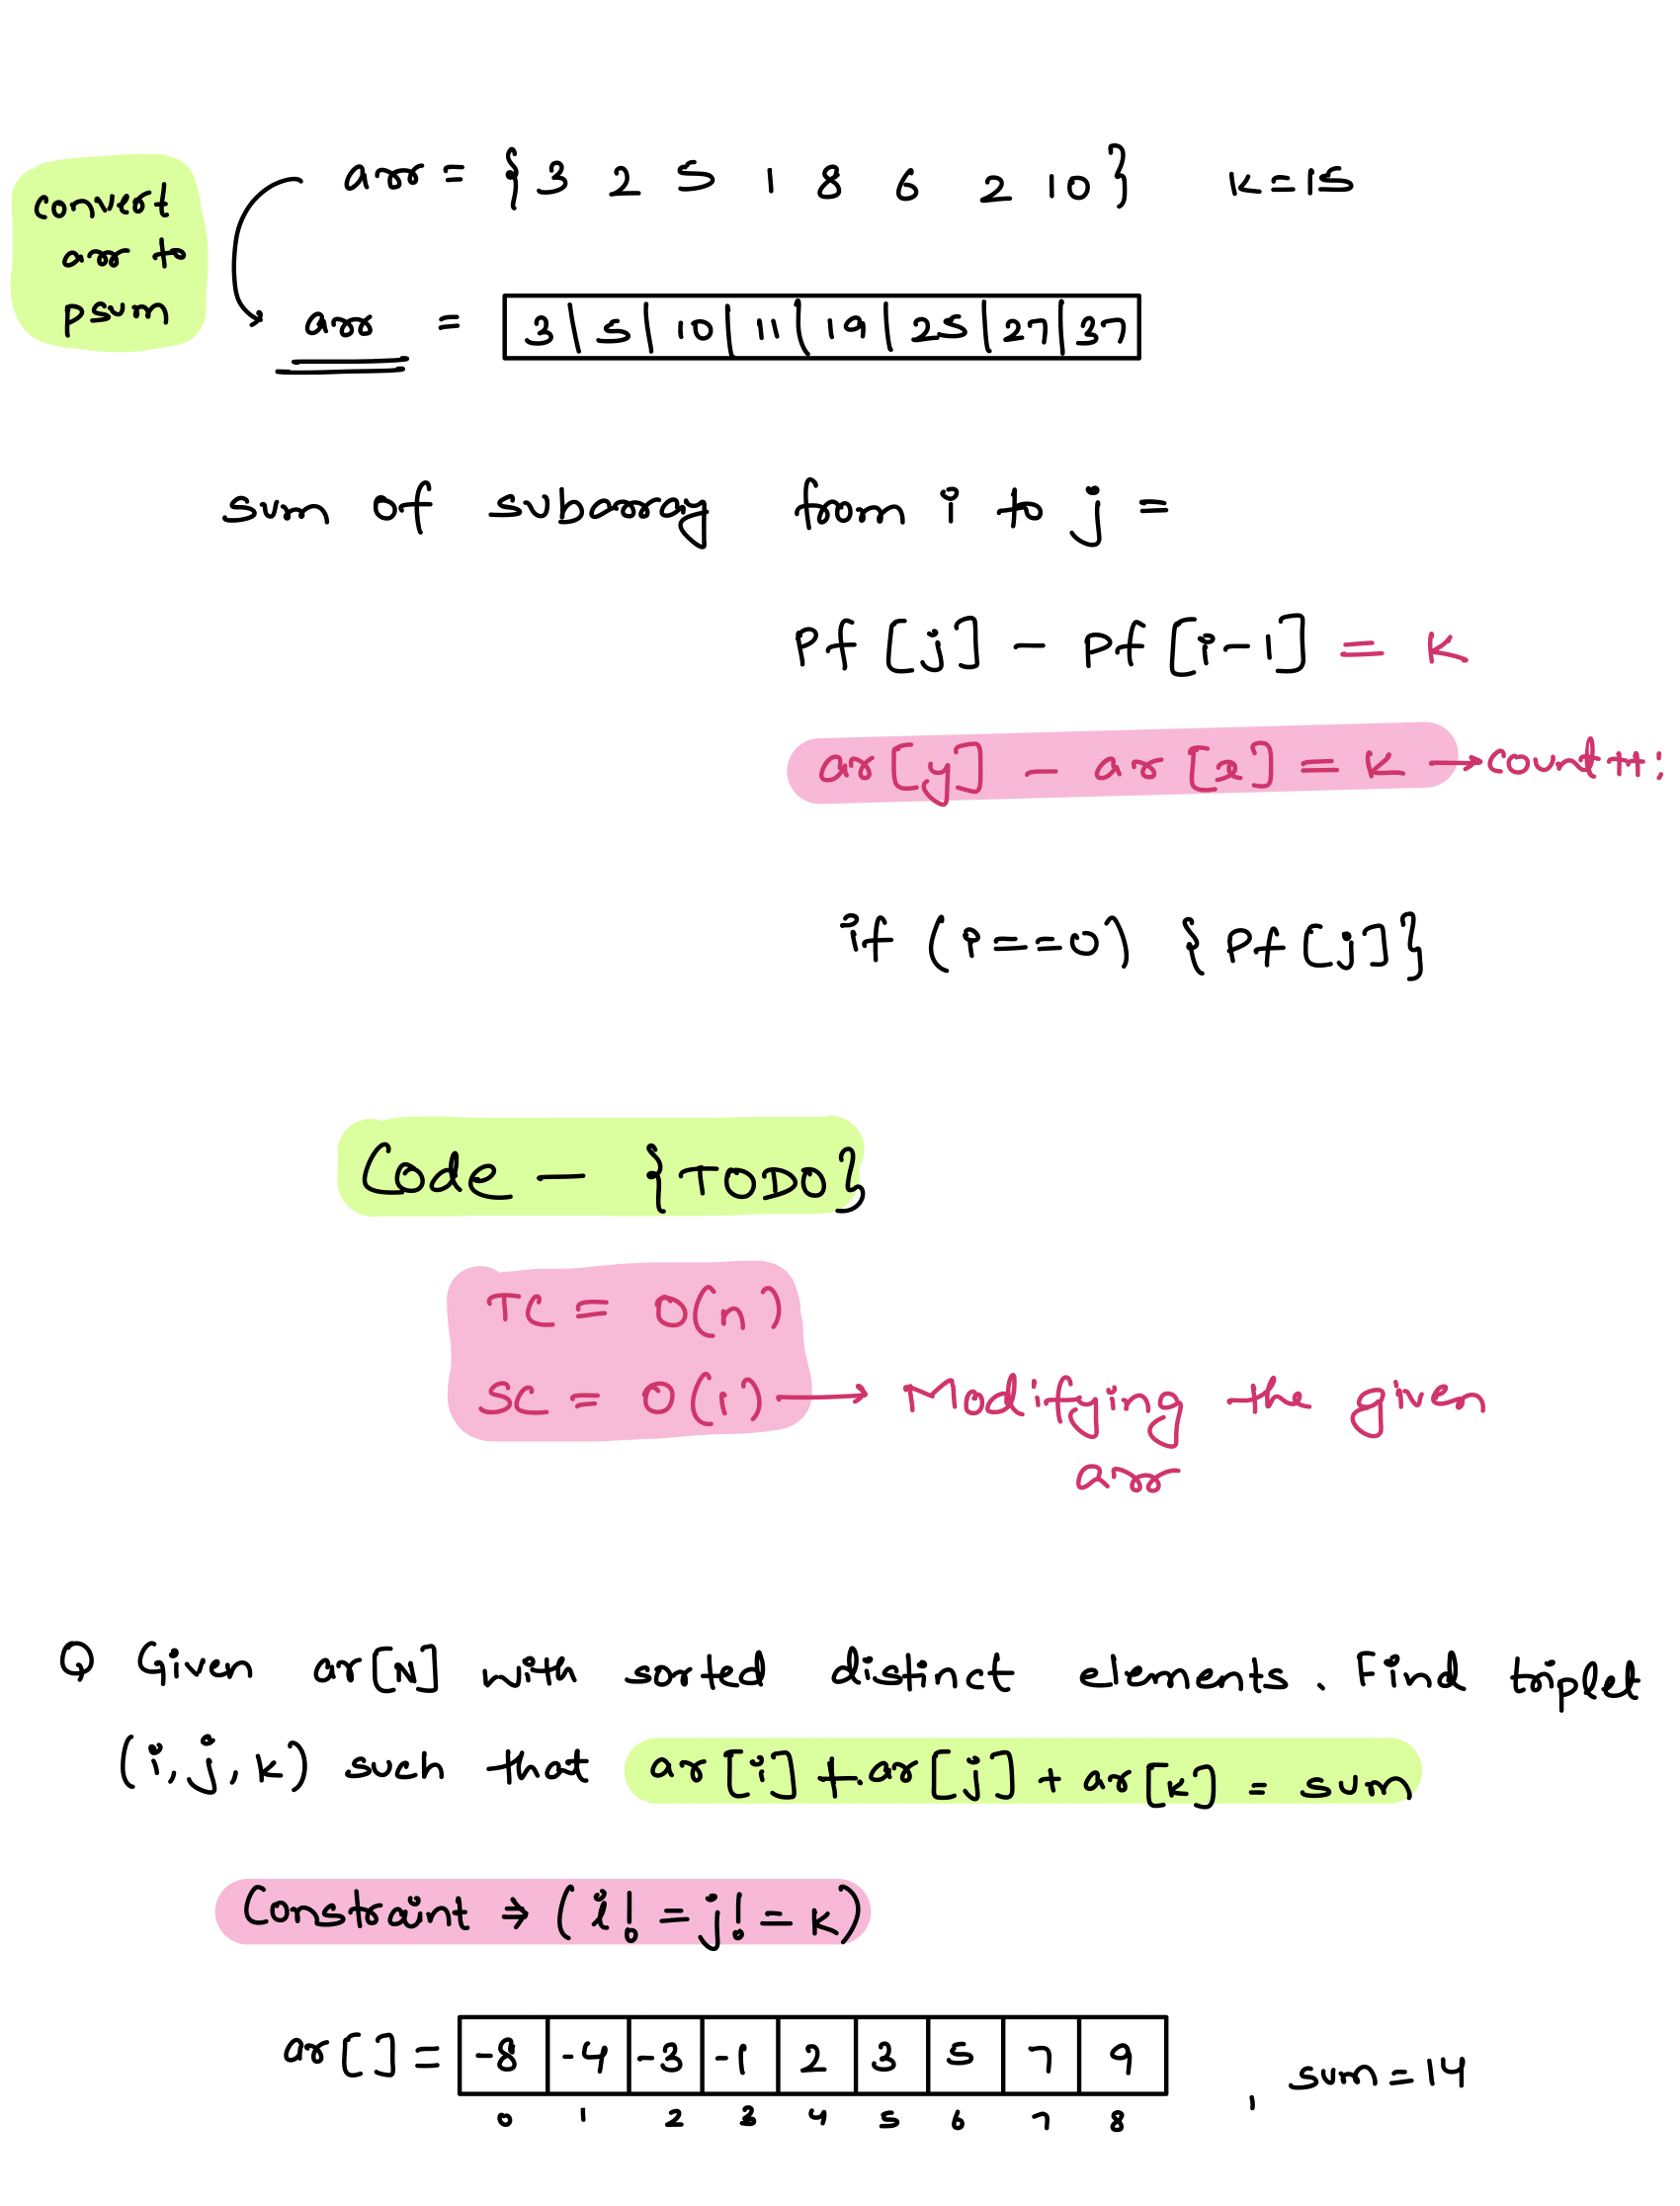 convert
arr to
psum
arr = {3 2 5 1 8 6 2 10} k=15
arr = 3 | 5 | 10 | 11 | 19 | 25 | 27 | 37
sum of subarray from i to j =
Pf [j] - Pf [i-1] = k
ar[y] - ar[x] = k → count++;
if (i==0) {Pf[j]}
Code - {TODO}
TC = O(n)
SC = O(1) → Modifying the given
arr
Q Given ar[N] with sorted distinct elements. Find triplet
(i, j, k) such that ar[i] + ar[j] + ar[k] = sum
Constraint ⇒ (i != j != k)
ar[] = -8 -4 -3 -1 2 3 5 7 9 , sum = 14
0 1 2 3 4 5 6 7 8